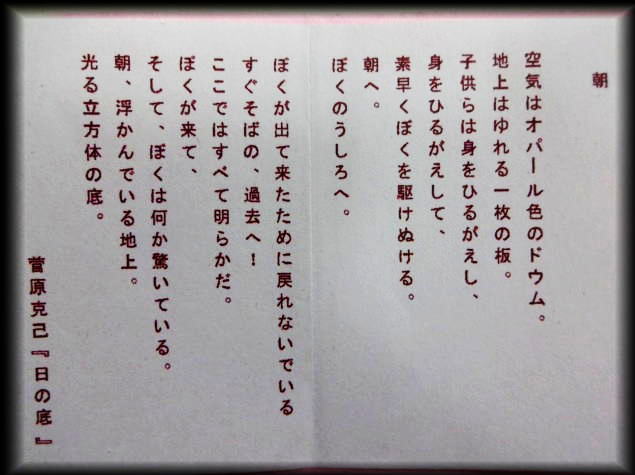 朝
空気はオパール色のドウム。
地上はゆれる一枚の板。
子供らは身をひるがえし、
身をひるがえして、
素早くぼくを駆けぬける。
朝へ。
ぼくのうしろへ。
ぼくが出て来たために戻れないでいる
すぐそばの、過去へ！
ここではすべて明らかだ。
ぼくが来て、
そして、ぼくは何か驚いている。
朝、浮かんでいる地上。
光る立方体の底。
菅原克己『日の底』